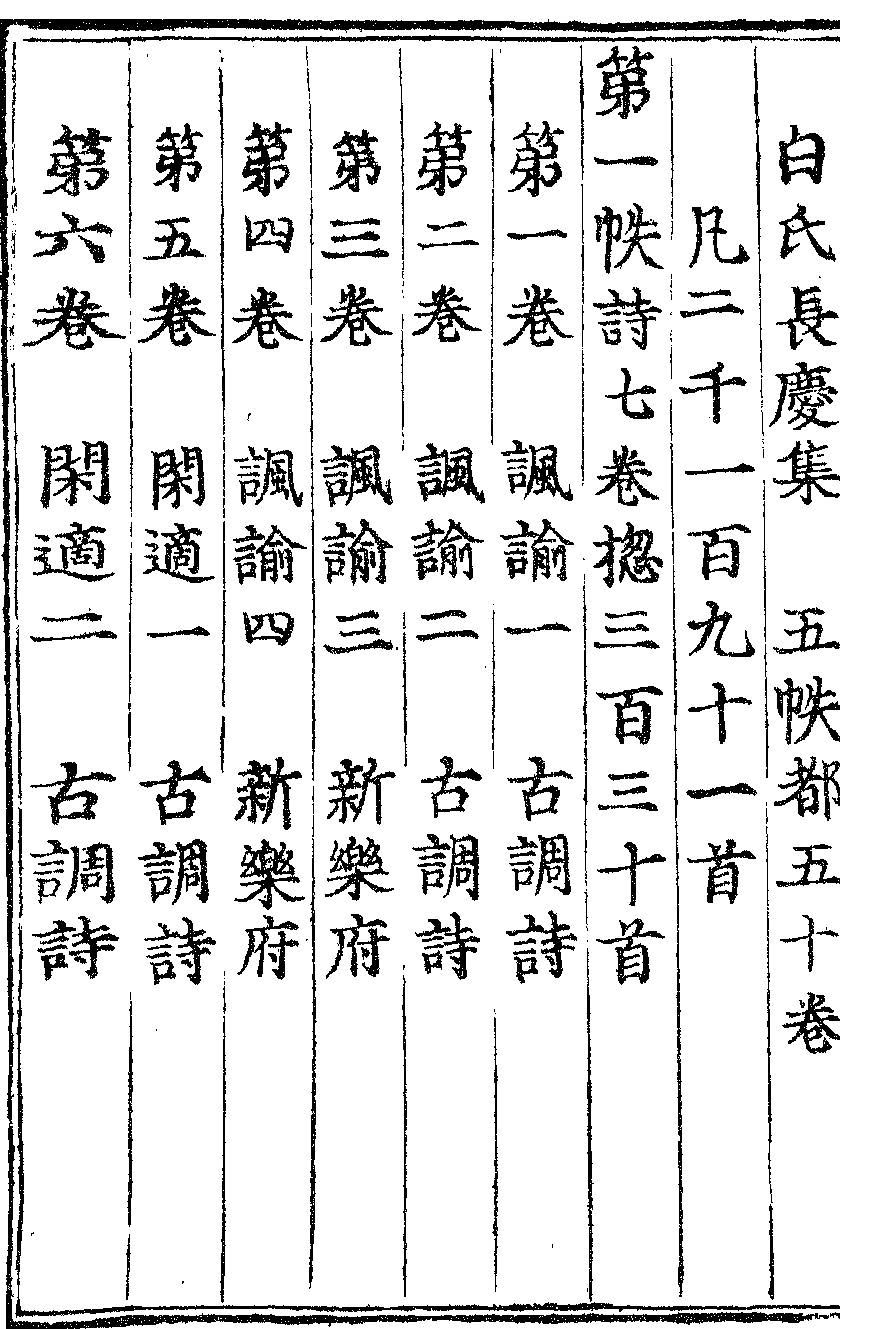 白氏長慶集　五帙都五十卷
凡二千一百九十一首
第一帙詩七卷揔三百三十首
第一卷　諷諭一　古調詩
第二卷　諷諭二　古調詩
第三卷　諷諭三　新樂府
第四卷　諷諭四　新樂府
第五卷　閑適一　古調詩
第六卷　閑適二　古調詩